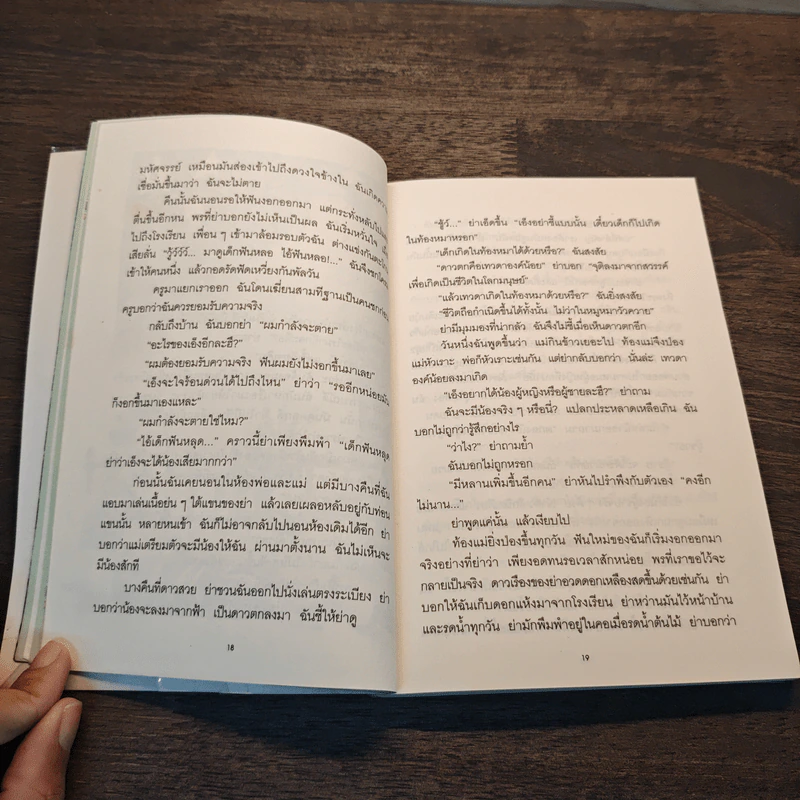 มหัศจรรย์ เหมือนมันส่องเข้าไปถึงดวงใจข้างใน ฉันเกิดความ
เชื่อมั่นขึ้นมาว่า ฉันจะไม่ตาย
คืนนั้นฉันนอนรอให้ฟันงอกออกมา แต่กระทั่งหลับไป
ตื่นขึ้นอีกหน พรที่ย่าบอกยังไม่เห็นเป็นผล ฉันเริ่มหวั่นใจ
ไปถึงโรงเรียน เพื่อน ๆ เข้ามาล้อมรอบตัวฉัน ต่างแข่งกัน
เสียลั่น “วู้ว์วี่ว์... มาดูเด็กฟันหลอ ไอ้ฟันหลอ!...” ฉันจึง
เข้าให้คนหนึ่ง แล้วกอดรัดฟัดเหวี่ยงกันพัลวัน
ครูมาแยกเราออก ฉันโดนเฆี่ยนสามทีฐานเป็นคนชกก่อน
ครูบอกว่าฉันควรยอมรับความจริง
กลับถึงบ้าน ฉันบอกย่า “ผมกำลังจะตาย”
“อะไรของเอ็งอีกละฮึ?”
“ผมต้องยอมรับความจริง ฟันผมยังไม่งอกขึ้นมาเลย”
“เอ็งจะใจร้อนด่วนได้ไปถึงไหน” ย่าว่า “รออีกหน่อยมัน
ก็งอกขึ้นมาเองแหละ”
“ผมกำลังจะตายใช่ไหม?”
“ไอ้เด็กฟันหลุด...” คราวนี้ย่าเพียงพึมพำ “เด็กฟันหลุด
ย่าว่าเอ็งจะได้น้องเสียมากกว่า”
ก่อนนั้นฉันเคยนอนในห้องพ่อและแม่ แต่มีบางคืนที่ฉัน
แอบมาเล่นเนื้อย่น ๆ ใต้แขนของย่า แล้วเลยเผลอหลับอยู่กับท่อน
แขนนั้น หลายหนเข้า ฉันก็ไม่อาจกลับไปนอนห้องเดิมได้อีก ย่า
บอกว่าแม่เตรียมตัวจะมีน้องให้ฉัน ผ่านมาตั้งนาน ฉันไม่เห็นจะ
มีน้องสักที
บางคืนที่ดาวสวย ย่าชวนฉันออกไปนั่งเล่นตรงระเบียง ย่า
บอกว่าน้องจะลงมาจากฟ้า เป็นดาวตกลงมา ฉันชี้ให้ย่าดู
18
“ชู้ว์...” ย่าเอ็ดขึ้น “เอ็งอย่าชี้แบบนั้น เดี๋ยวเด็กก็ไปเกิด
ในท้องหมาหรอก”
“เด็กเกิดในท้องหมาได้ด้วยหรือ?” ฉันสงสัย
“ดาวตกคือเทวดาองค์น้อย” ย่าบอก “จุติลงมาจากสวรรค์
เพื่อเกิดเป็นชีวิตในโลกมนุษย์”
“แล้วเทวดาเกิดในท้องหมาด้วยหรือ?” ฉันยิ่งสงสัย
“ชีวิตถือกำเนิดขึ้นได้ทั้งนั้น ไม่ว่าในหมูหมาวัวควาย”
ย่ามีมุมมองที่น่ากลัว ฉันจึงไม่ชี้เมื่อเห็นดาวตกอีก
วันหนึ่งฉันพูดขึ้นว่า แม่กินข้าวเยอะไป ท้องแม่จึงป่อง
แม่หัวเราะ พ่อก็หัวเราะเช่นกัน แต่ย่ากลับบอกว่า นั่นล่ะ เทวดา
องค์น้อยลงมาเกิด
“เอ็งอยากได้น้องผู้หญิงหรือผู้ชายละฮึ?” ย่าถาม
ฉันจะมีน้องจริง ๆ หรือนี่? แปลกประหลาดเหลือเกิน ฉัน
บอกไม่ถูกว่ารู้สึกอย่างไร
“ว่าไง?” ย่าถามย้ำ
ฉันบอกไม่ถูกหรอก
“มีหลานเพิ่มขึ้นอีกคน” ย่าหันไปรำพึงกับตัวเอง “คงอีก
ไม่นาน...”
ย่าพูดแค่นั้น แล้วเงียบไป
ท้องแม่ยิ่งป่องขึ้นทุกวัน ฟันใหม่ของฉันก็เริ่มงอกออกมา
จริงอย่างที่ย่าว่า เพียงอดทนรอเวลาสักหน่อย พรที่เราขอไว้จะ
กลายเป็นจริง ดาวเรืองของย่าอวดดอกเหลืองสดขึ้นด้วยเช่นกัน ย่า
บอกให้ฉันเก็บดอกแห้งมาจากโรงเรียน ย่าหว่านมันไว้หน้าบ้าน
และรดน้ำทุกวัน ย่ามักพึมพำอยู่ในคอเมื่อรดน้ำต้นไม้ ย่าบอกว่า
19